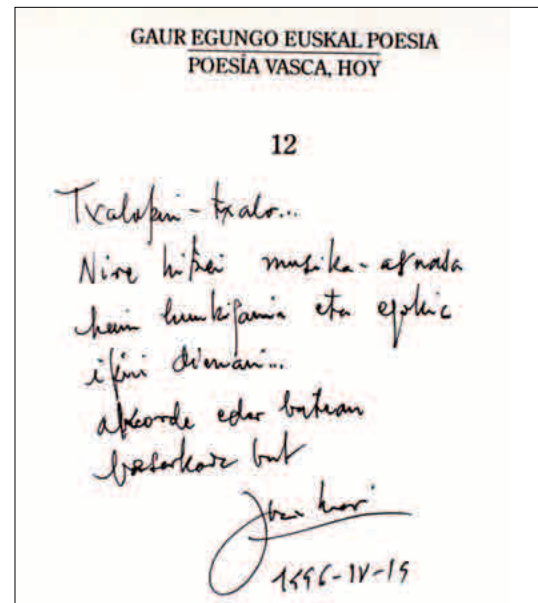 GAUR EGUNGO EUSKAL POESIA
POESÍA VASCA, HOY
12
Txalopin-txalo...
Nire hitzei musika-arnasa
hain hunkigarria eta egokia
ipini dienari...
akorde eder batean
besarkada bat
Juan Mari
1996-IV-19